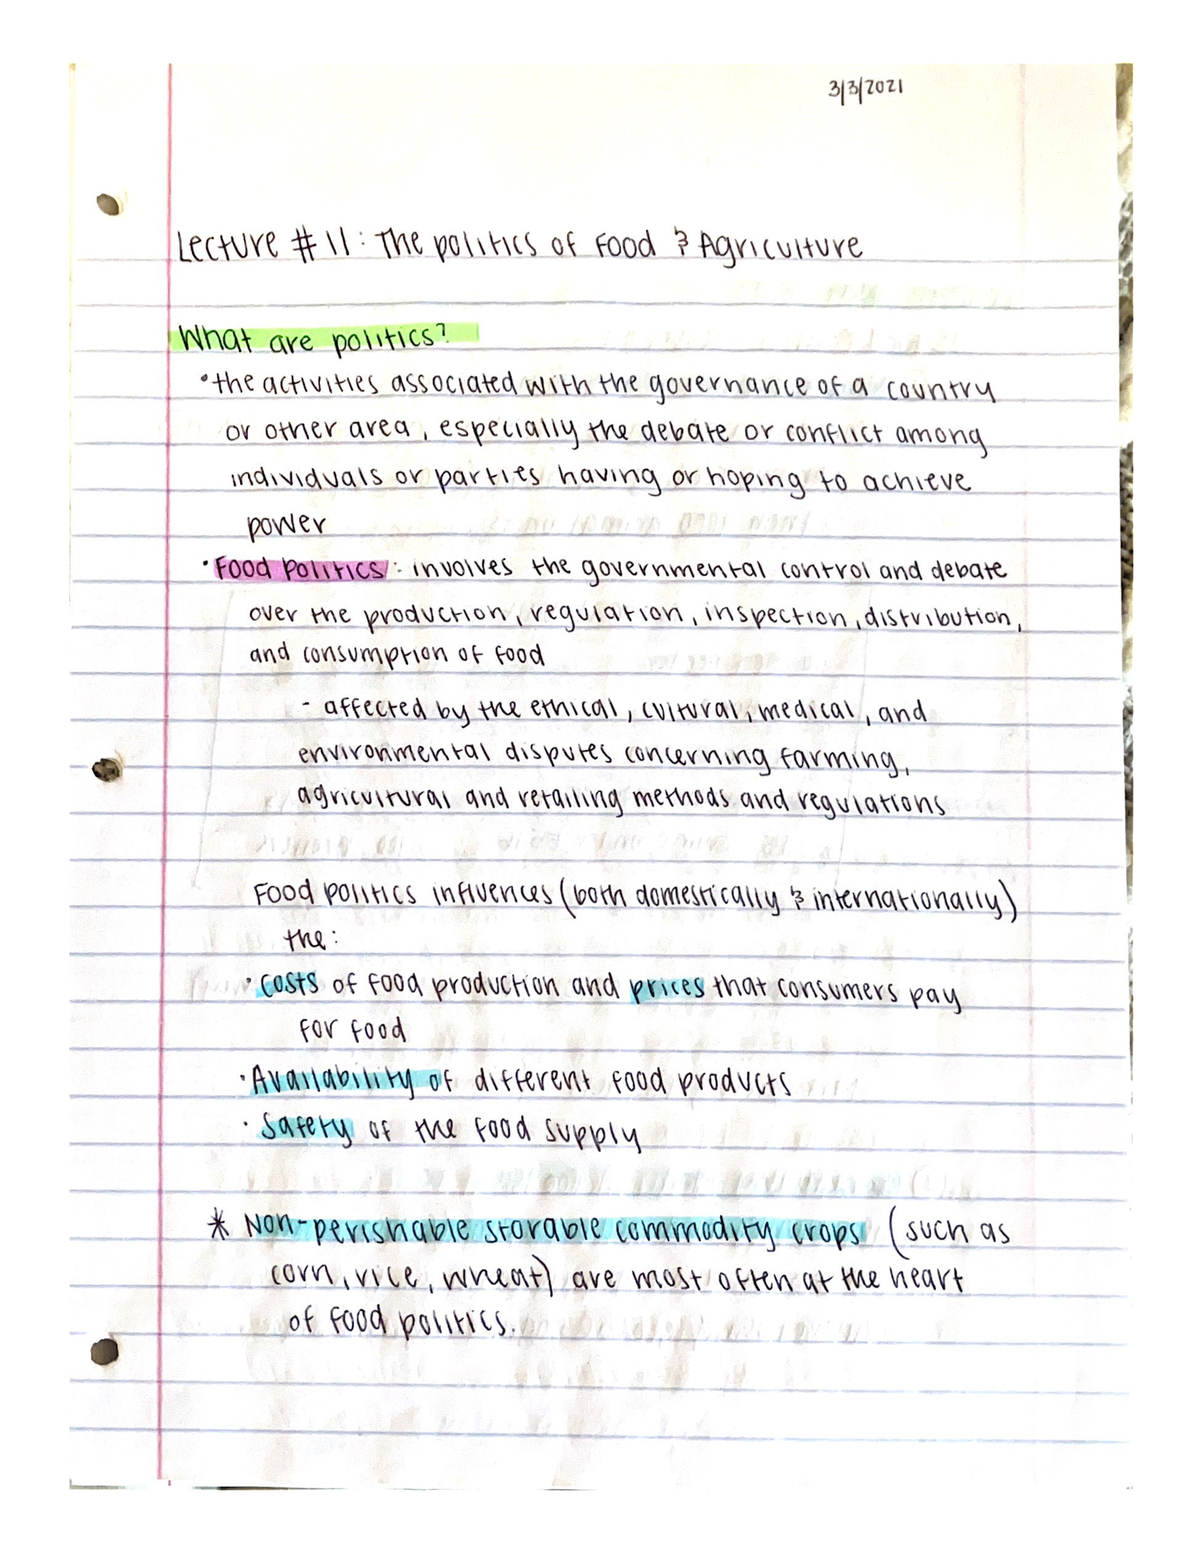 3/3/2021
Lecture #11: The politics of Food & Agriculture
What are politics?
•the activities associated with the governance of a country
or other area, especially the debate or conflict among
individuals or parties having or hoping to achieve
power
•Food Politics: involves the governmental control and debate
over the production, regulation, inspection, distribution,
and consumption of food
- affected by the ethical, cultural, medical, and
environmental disputes concerning farming,
agricultural and retailing methods and regulations
Food politics influences (both domestically & internationally)
the:
•Costs of food production and prices that consumers pay
for food
•Availability of different food products
•Safety of the food supply
* Non-perishable storable commodity crops (such as
corn, rice, wheat) are most often at the heart
of food politics.